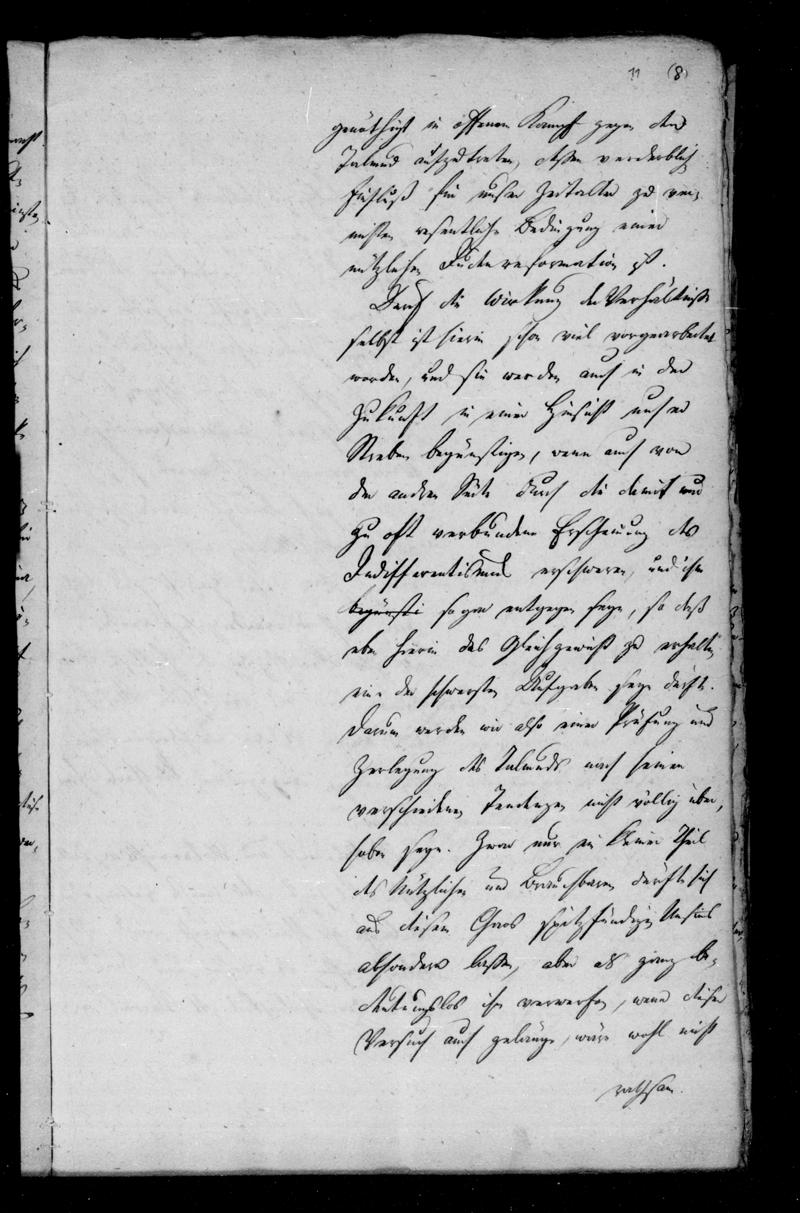 11 (8)
genöthigt in offenen Kampf gegen den
Talmud aufzutreten, dessen verderblich
Einfluß für unser Zeitalter zu ver-
nichten wesentliche Bedingung einer
nützlichen Judenreformation ist.
Durch die Wirkung der Verhältnisse
selbst ist hierin schon viel vorgearbeitet
worden, und sie werden auch in der
Zukunft in einer Hinsicht unser
Streben begünstigen, wenn auch von
der andren Seite durch die damit nur
zu oft verbundene Erscheinung des
Indifferentismus erschweren, und ihm
begünsti sogar entgegen seyn, so daß
eben hierin das Gleichgewicht zu erhalten
eine der schwersten Aufgaben seyn dürfte.
Darum werden wir also einer Prüfung und
Zerlegung des Talmuds nach seinen
verschiedenen Tendenzen nicht völlig über-
hoben seyn. Zwar nur ein kleiner Theil
des Nützlichen und Brauchbaren dürfte sich
aus diesem Chaos spitzfündigen
absondern lassen, aber als ganz be-
deutungslos ihn verwerfen, wenn dieser
Versuch auch gelänge, wäre wohl nicht
rathsam.